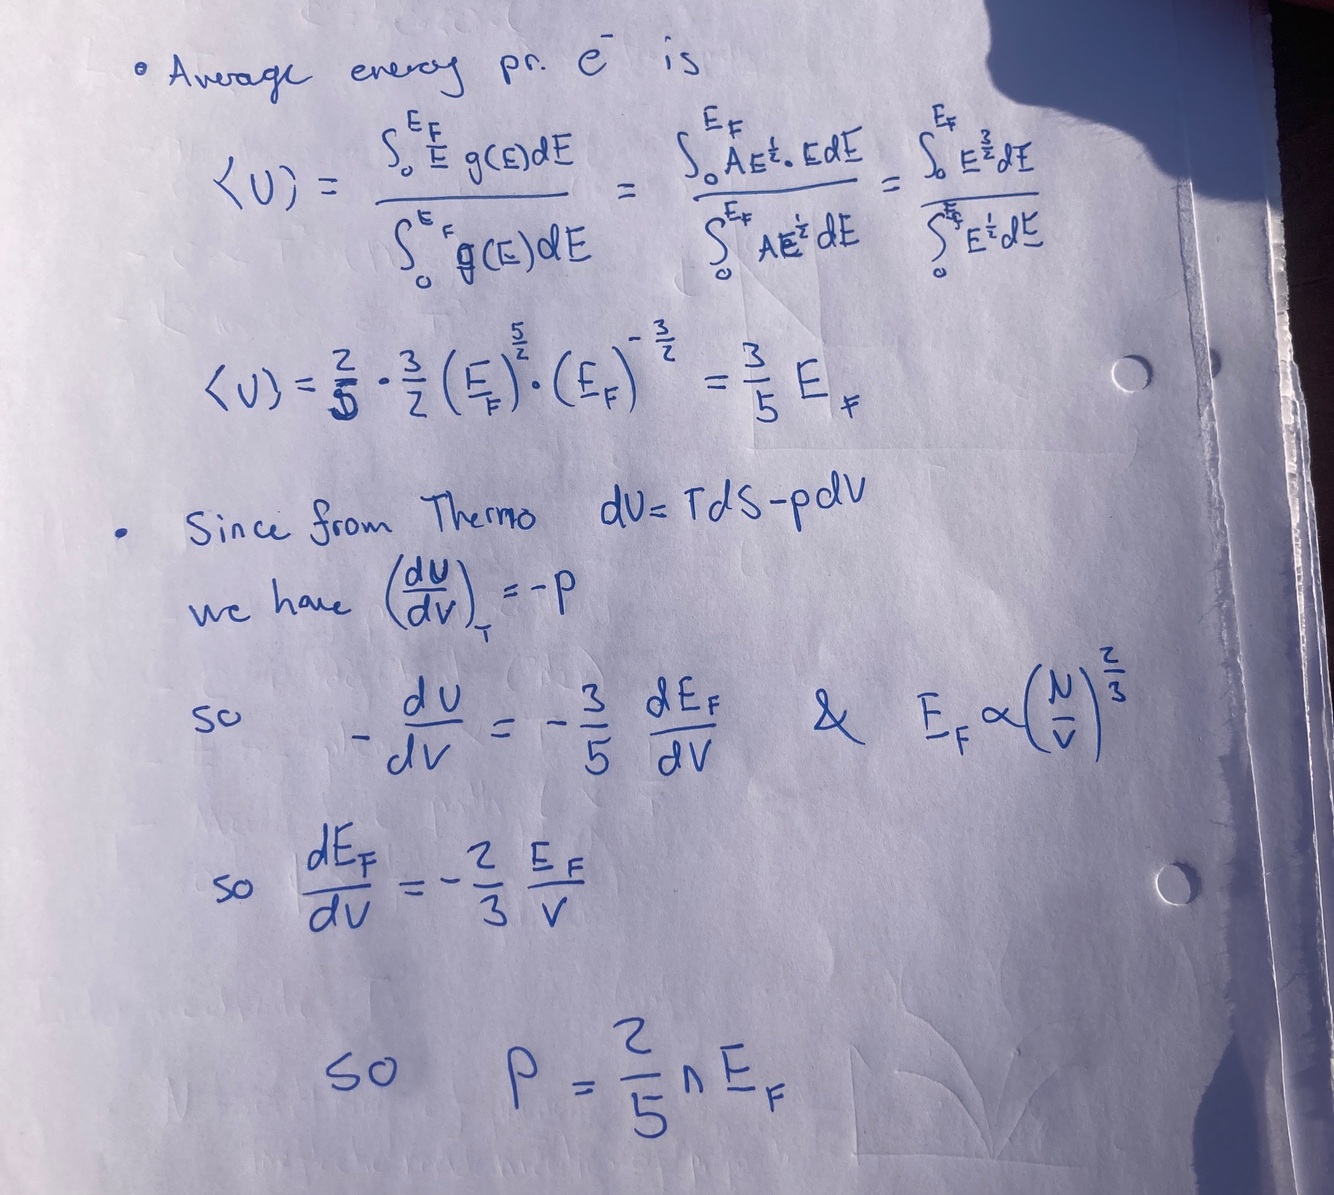 • Average energy pr. e⁻ is
⟨U⟩ = ∫₀^{E_F} E g(E)dE / ∫₀^{E_F} g(E)dE = ∫₀^{E_F} AE^{1/2} · E dE / ∫₀^{E_F} AE^{1/2} dE = ∫₀^{E_F} E^{3/2} dE / ∫₀^{E_F} E^{1/2} dE
⟨U⟩ = 2/5 · 3/2 (E_F)^{5/2} · (E_F)^{-3/2} = 3/5 E_F
• Since from Thermo dU = TdS - pdV
we have (dU/dV)_T = -p
so - dU/dV = - 3/5 dE_F/dV & E_F ∝ (N/V)^{2/3}
so dE_F/dV = - 2/3 E_F/V
so P = 2/5 n E_F